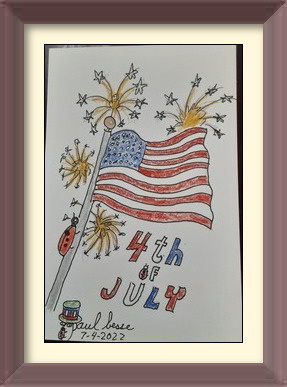 4th
OF
JULY
Paul besse
7-4-2022